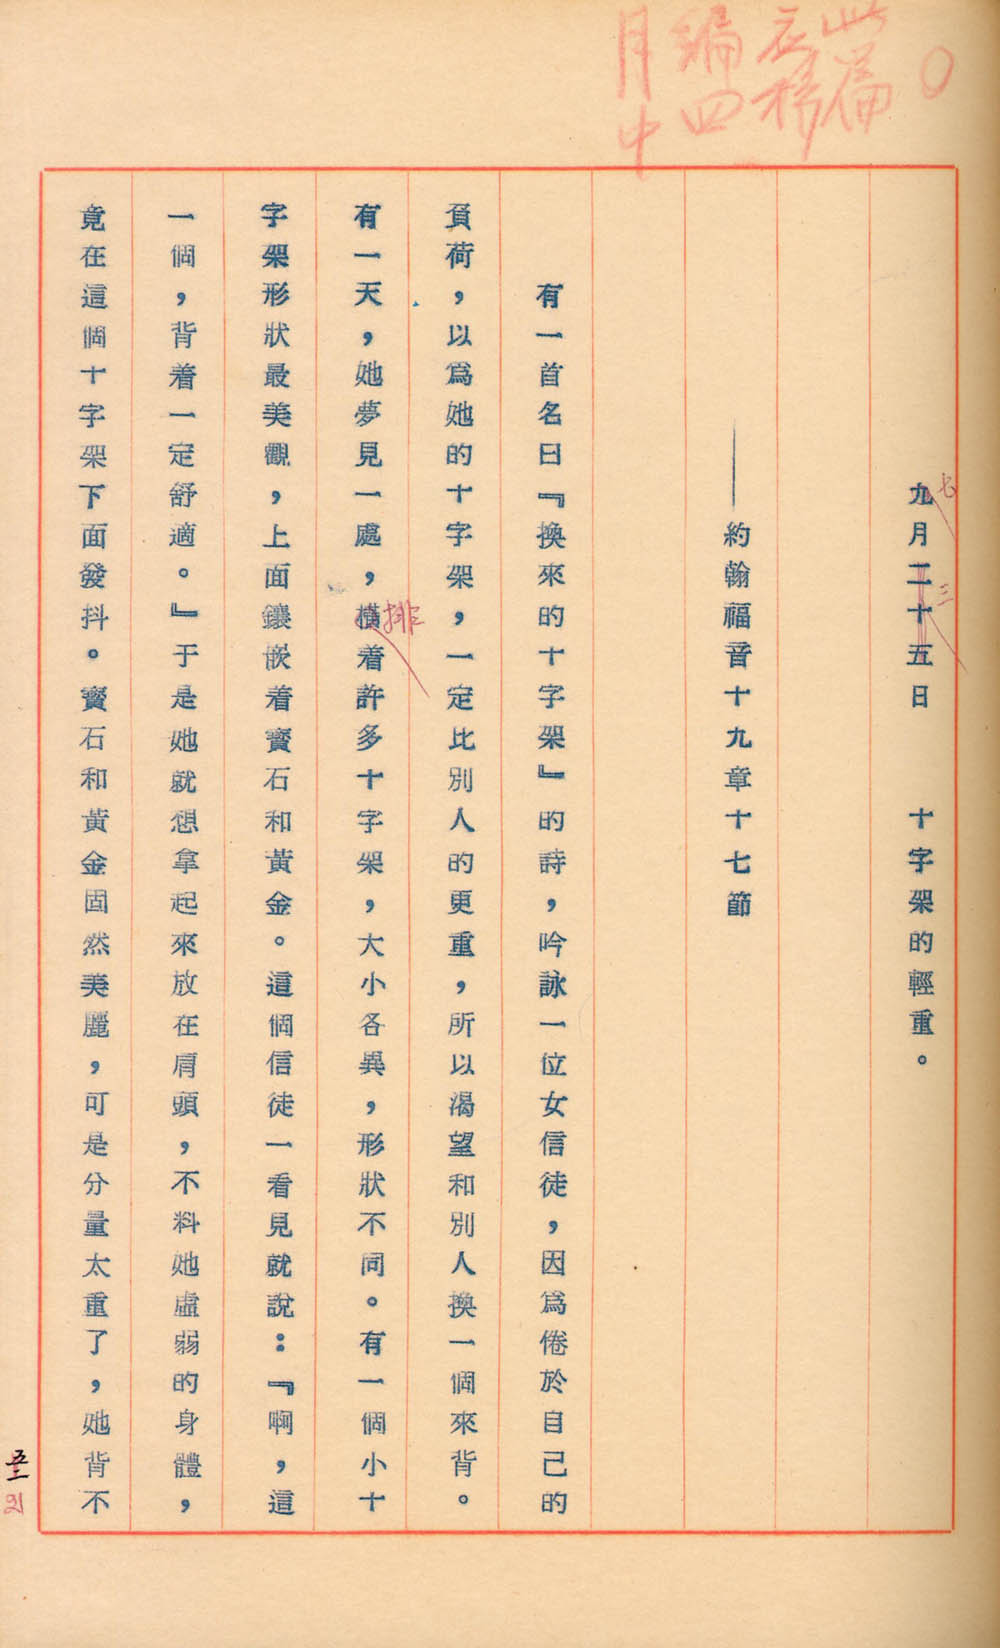 此篇
應移
編四
月中
九月二十五日　十字架的輕重。
七
三
——約翰福音十九章十七節
有一首名曰『換來的十字架』的詩，吟詠一位女信徒，因爲倦於自己的
負荷，以爲她的十字架，一定比別人的更重，所以渴望和別人換一個來背。
有一天，她夢見一處，橫着許多十字架，大小各異，形狀不同。有一個小十
排
字架形狀最美觀，上面鑲嵌着寶石和黃金。這個信徒一看見就說：『啊，這
一個，背着一定舒適。』于是她就想拿起來放在肩頭，不料她虛弱的身體，
竟在這個十字架下面發抖。寶石和黃金固然美麗，可是分量太重了，她背不